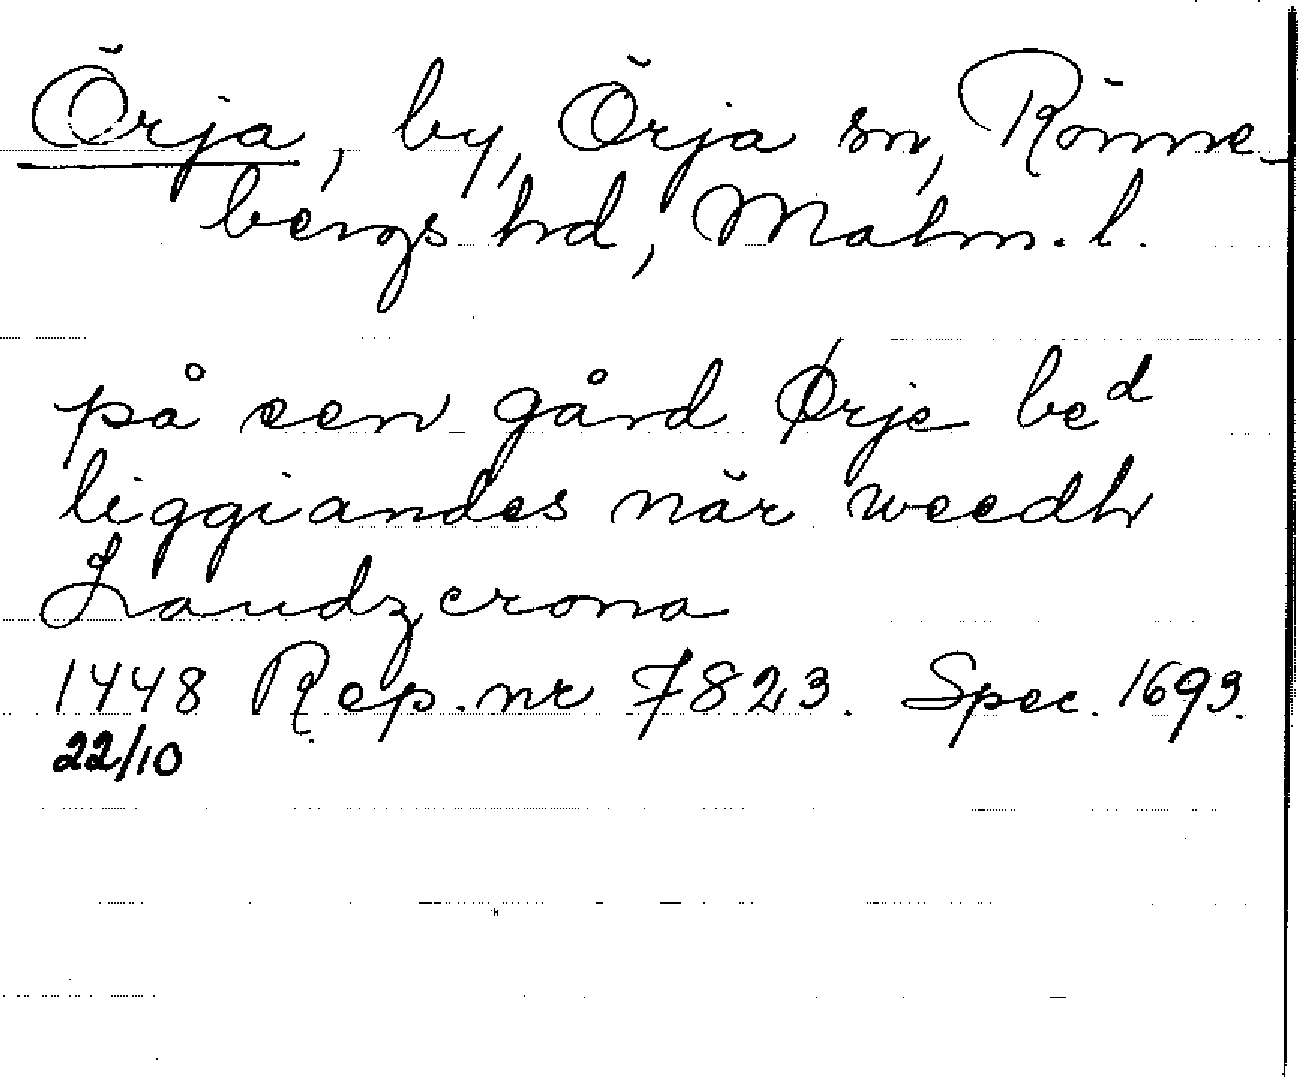 Örja, by, Örja sn, Rönne-
bergs hd, Malm. l.
på een gård Ørje be^d
liggiandes när weedh
Landzcrona
1448 Rep. nr 7823. Spec. 1693.
22/10